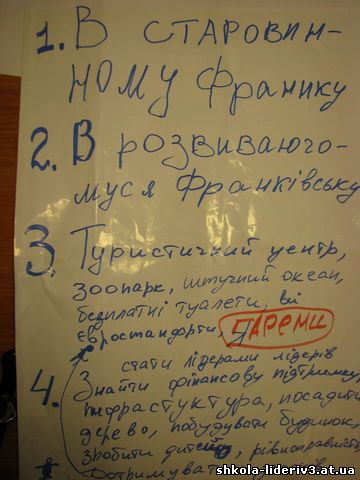 1. В СТАРОВИН-
НОМУ Франику
2. В розвиваюго-
муся Франківську
3. Туристичний центр,
зоопарк, штучний океан,
безплатні туалети, всі
євростандарти, ЧАРЕМИ
стати лідерами лідерів
4. Знайти фінансову підтримку,
інфраструктура, посадити
дерево, побудувати будинок,
зробити дитей, рівноправність
Дотримувати
shkola-lideriv3.at.ua